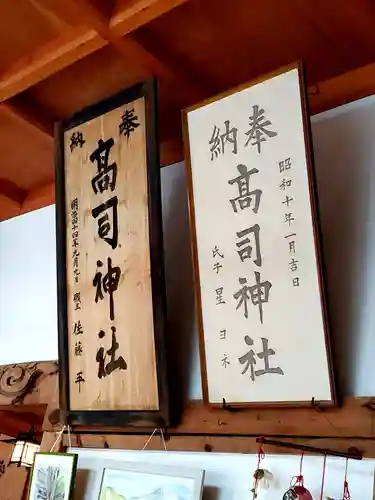 奉納
昭和十年一月吉日
髙司神社
氏子 星 ヨネ
奉納
髙司神社
明治四十四年九月九日 願主 佐藤平